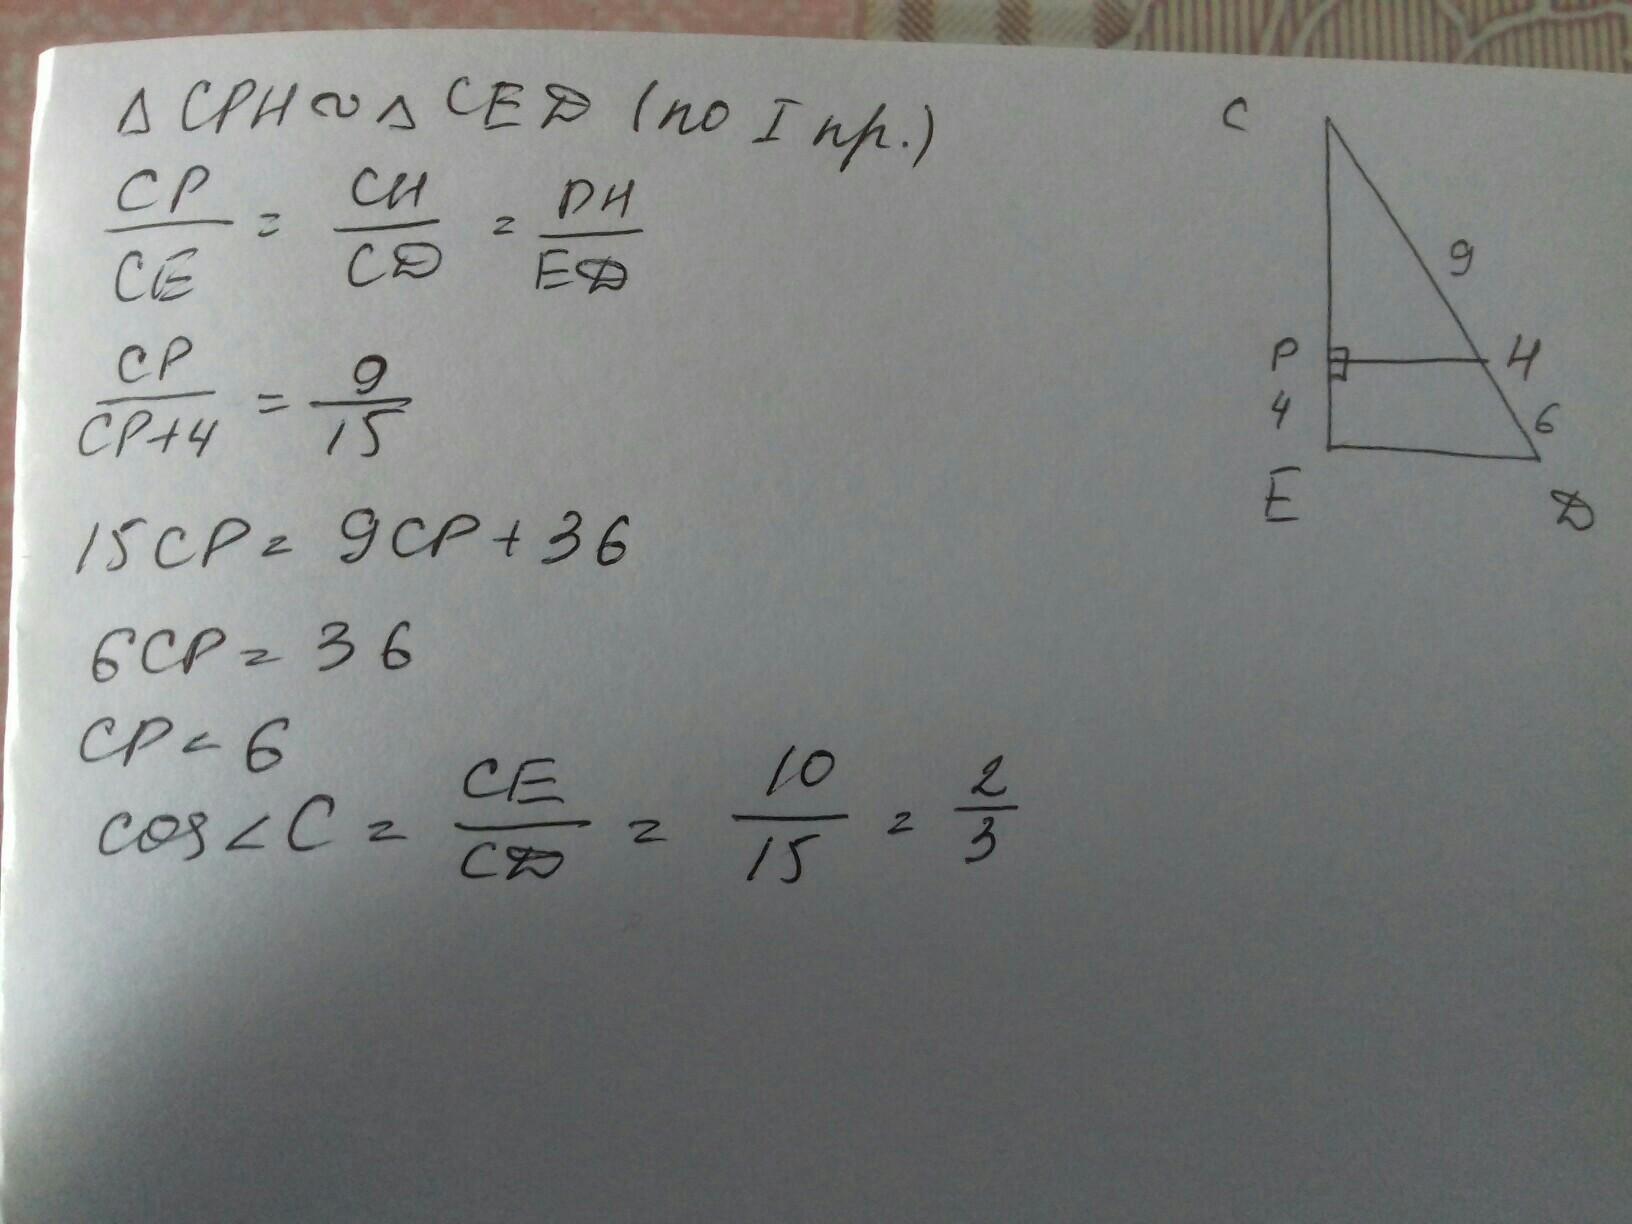 Δ CPH ∾ Δ CED (по I пр.)
CP/CE = CH/CD = PH/ED
CP/CP+4 = 9/15
15CP = 9CP + 36
6CP = 36
CP = 6
cos∠C = CE/CD = 10/15 = 2/3
C
9
P
H
4
6
E
D